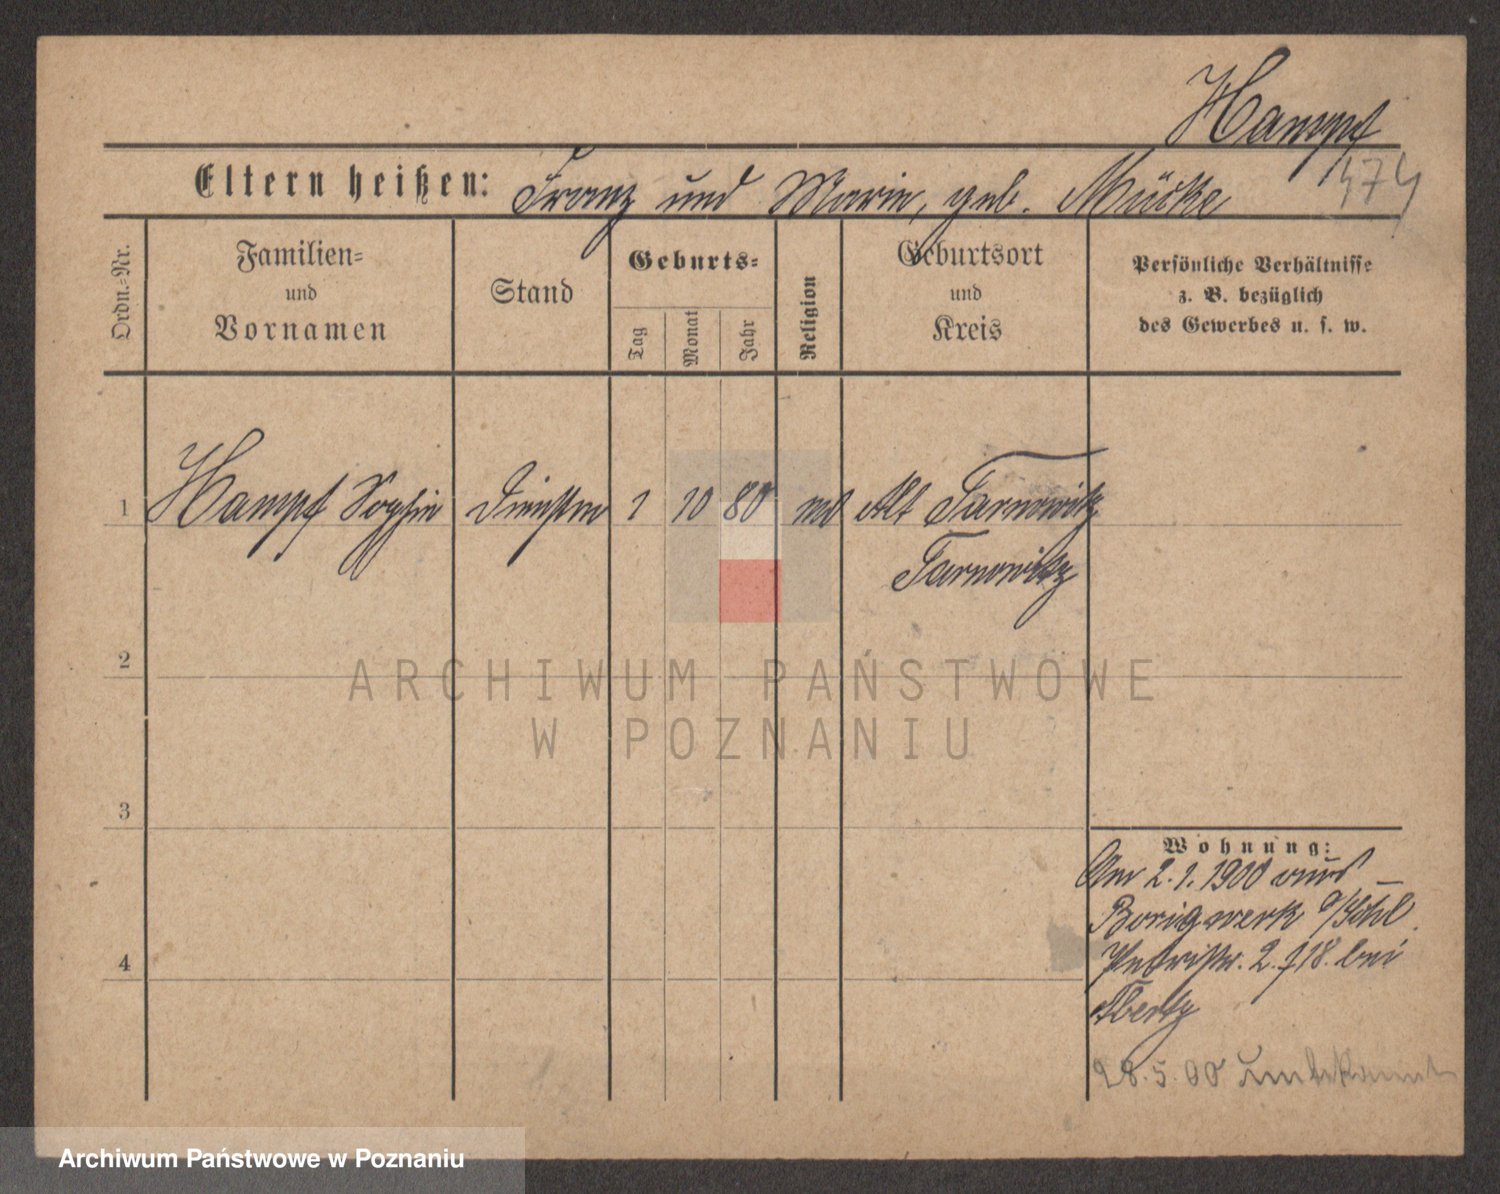 Hampf
474
Eltern heißen: Franz und Marie, geb. Mücke
Ordn.-Nr.
Familien-
und
Vornamen
Stand
Geburts-
Tag
Monat
Jahr
Religion
Geburtsort
und
Kreis
Persönliche Verhältnisse
z. B. bezüglich
des Gewerbes u. s. w.
1 Hampf Sophie 1 10 80 Alt Tarnowitz
Tarnowitz
2
3
4
Wohnung:
Am 2.1.1900 aus
Borigwerk O/Schl.
Petristr. 2. bei
28.5.00 unbekannt
ARCHIWUM PAŃSTWOWE
W POZNANIU
Archiwum Państwowe w Poznaniu